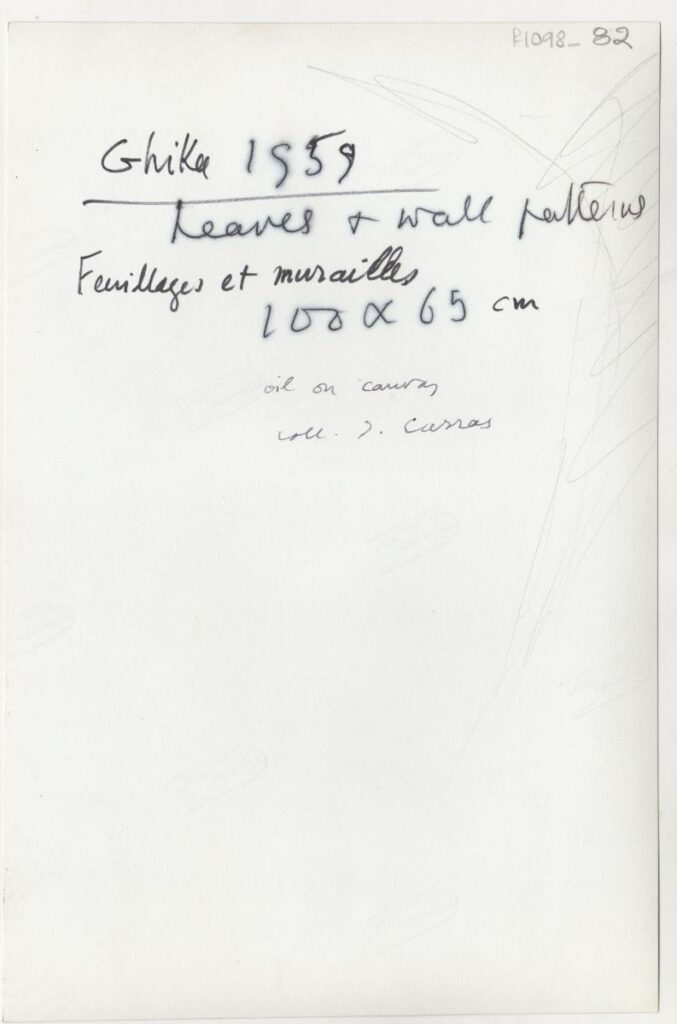 P1098_82
Ghika 1959
Leaves + wall patterns
Feuillages et murailles
100 x 65 cm
oil on canvas
coll. J. Carras